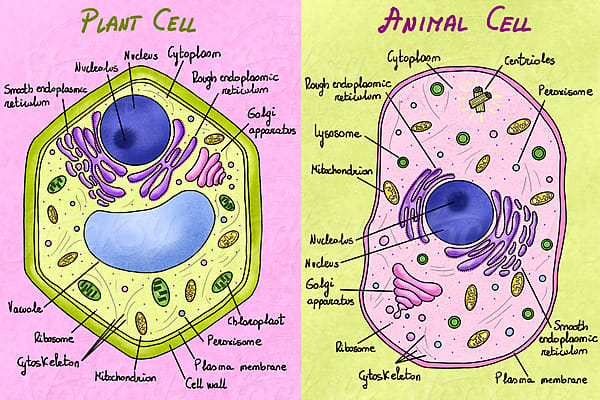 Plant Cell
Nucleus
Cytoplasm
Nucleolus
Smooth endoplasmic
reticulum
Rough endoplasmic
reticulum
Golgi
apparatus
Vacuole
Ribosome
Cytoskeleton
Mitochondrion
Cell wall
Plasma membrane
Peroxisome
Chloroplast
Animal Cell
Cytoplasm
Centrioles
Rough endoplasmic
reticulum
Peroxisome
Lysosome
Mitochondrion
Nucleolus
Nucleus
Golgi
apparatus
Ribosome
Cytoskeleton
Smooth
endoplasmic
reticulum
Plasma membrane